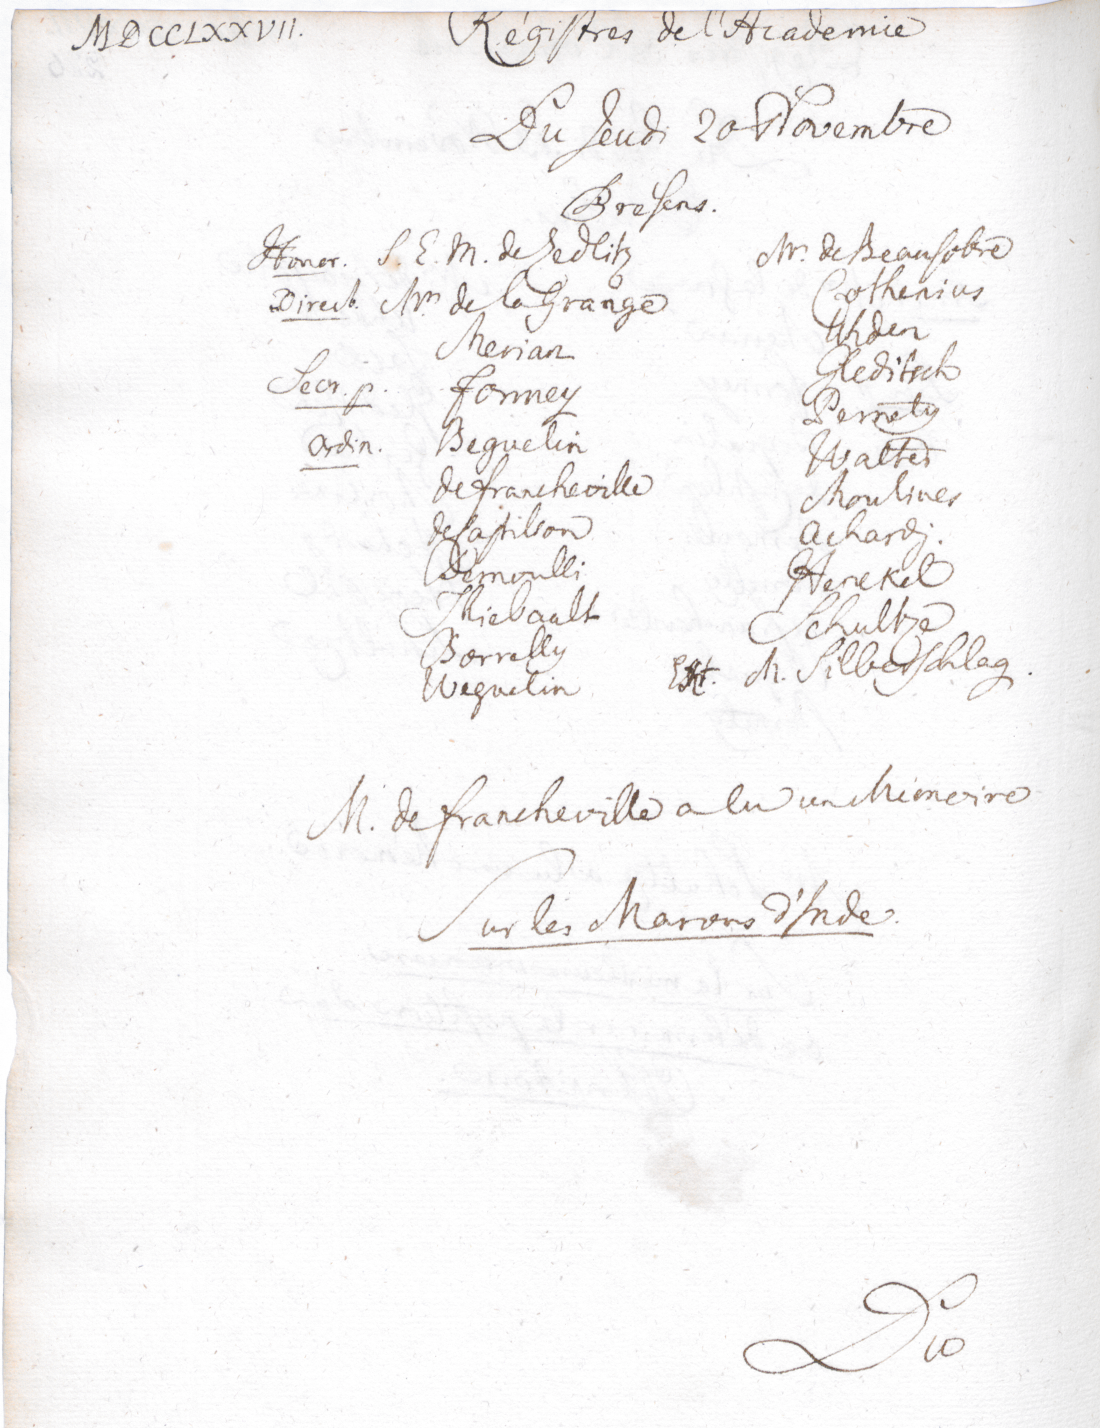 MDCCLXXVII.
Régistres de l'Academie
Du Jeudi 20 Novembre
Presens.
Honor. S. E. M. de Zedlitz
Direct. Mrs de la Grange
Merian
Secr. p. Formey
Ordin. Beguelin
de Francheville
de Castilson
Bernoulli
Thiebault
Borrelly
Weguelin
Mr. de Beausobre
Cothenius
Uhden
Gleditsch
Pernety
Walter
Moulines
Achard.
Henckel
Schultze
M. Silberschlag.
M. de Francheville a lu un Mémoire
Sur les Marons d'Inde.
Du